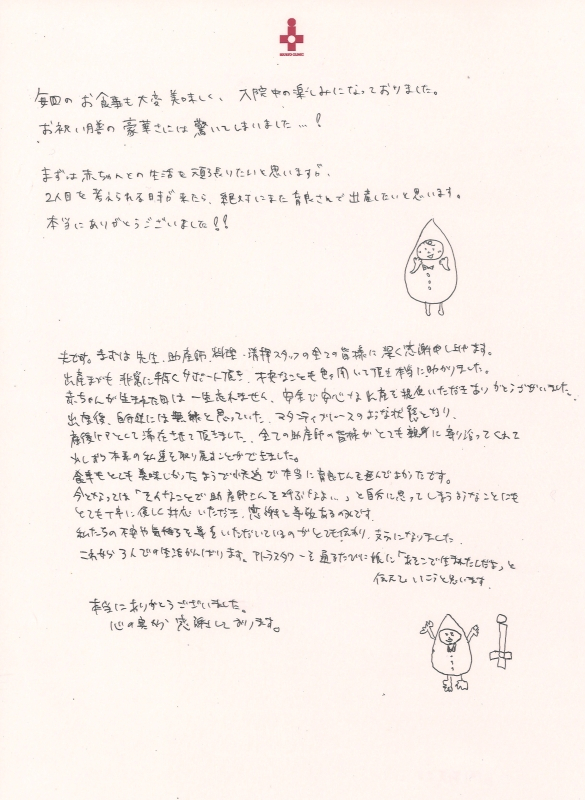 IKURYO CLINIC
毎回のお食事も大変美味しく、入院中の楽しみになっておりました。
お祝い膳の豪華さには驚いてしまいました…!
まずは赤ちゃんとの生活を頑張りたいと思いますが、
2人目を考えられる日が来たら、絶対にまた育良さんで出産したいと思います。
本当にありがとうございました!!
夫です。まずは先生、助産師、料理・清掃スタッフの全ての皆様に深く感謝申し上げます。
出産までも非常に手厚くサポート頂き、不安なことも色々聞いて頂き本当に助かりました。
赤ちゃんが生まれた日は一生忘れません、安全で安心な出産を提供いただきありがとうございました。
出産後、自分達には無縁と思っていた、マタニティブルースのような状態となり、
産後ケアとして滞在させて頂きました。全ての助産師の皆様がとても親身に寄り添ってくれて
少しずつ本来の私達を取り戻すことができました。
食事もとても美味しかったようで快適で本当に育良さんを選んでよかったです。
今となっては「そんなことで助産師さんを呼ぶなよ…」と自分に思ってしまうようなことにも
とても丁寧に優しく対応いただき、感謝と尊敬あるのみです。
私たちの不安や気持ちを尊重いただいているのがとても伝わり、支えになりました。
これから3人での生活がんばります。アトラスタワーを通るたびに娘に「あそこで生まれたんだよ」と
伝えていこうと思います。
本当にありがとうございました。
心の奥から感謝しております。